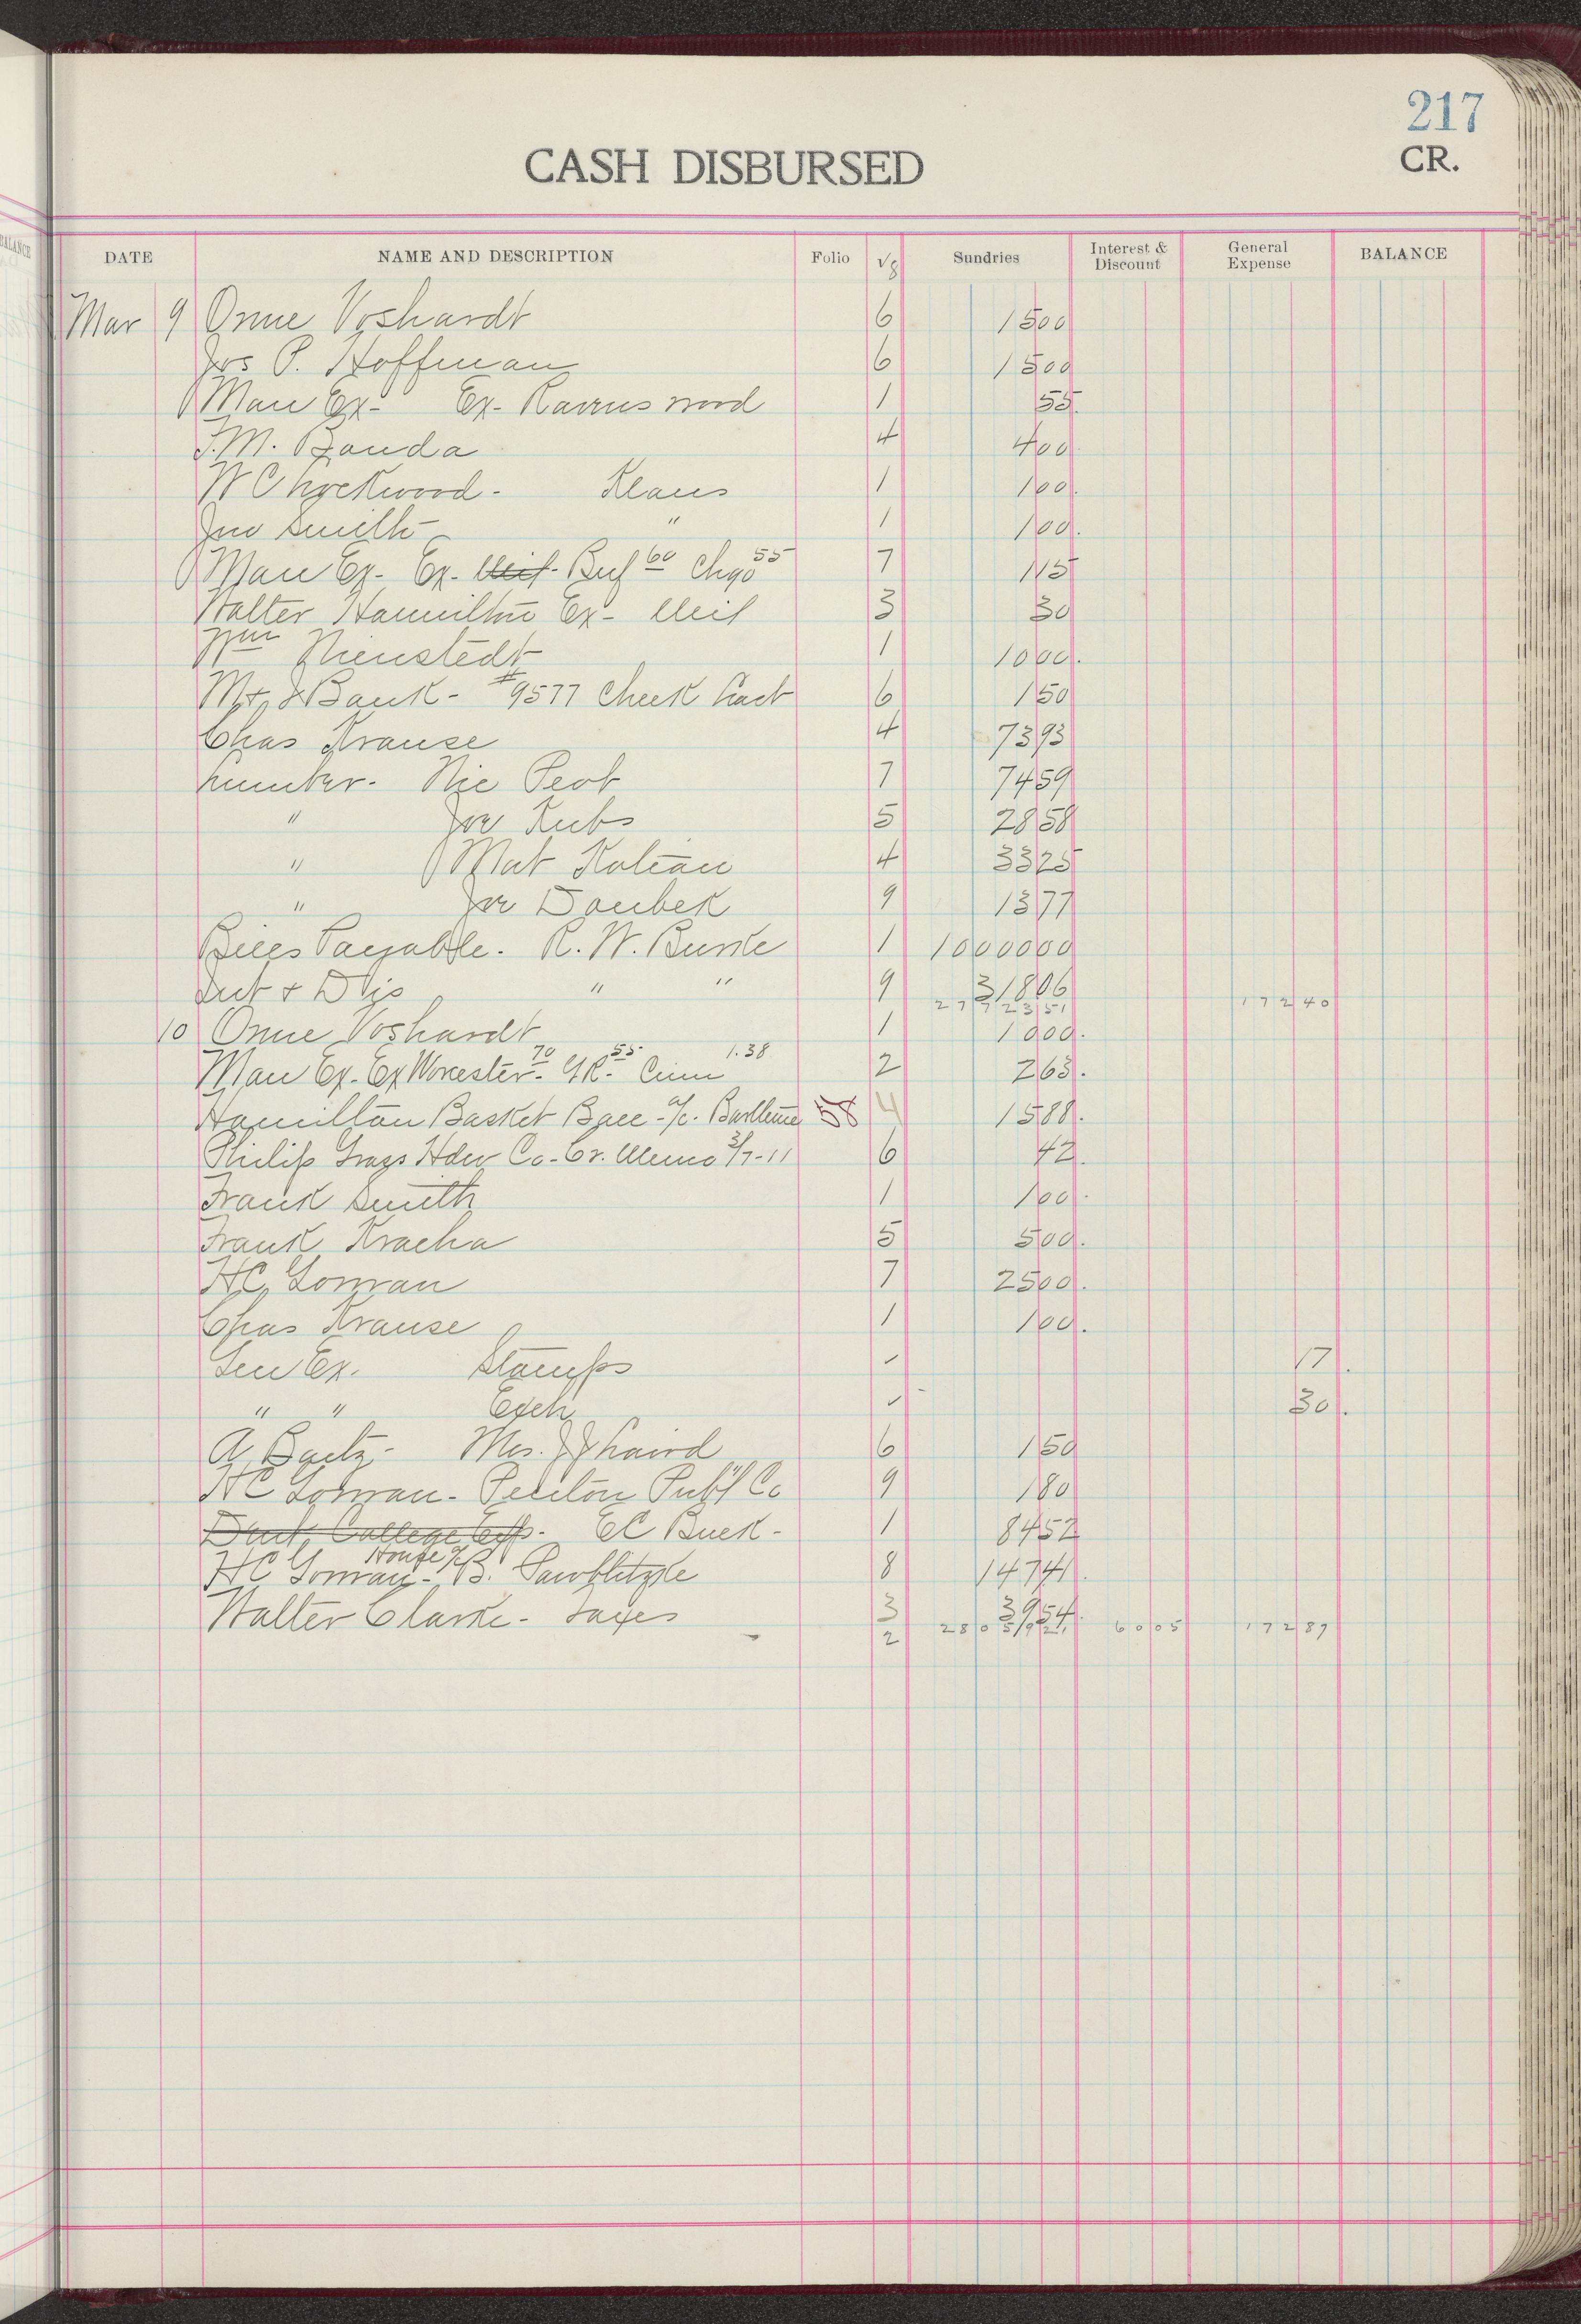 217
CASH DISBURSED CR.
DATE NAME AND DESCRIPTION Folio V8 Sundries Interest & Discount General Expense BALANCE
Mar 9 Onne Voshardt 6 1500
Jos P. Hoffman 6 1500
Man Ex- Ex- Ravenswood 1 55.
J.M. Banda 4 400.
W C Lockwood - Klaus 1 100.
Jno Smith " 1 100.
Man Ex- Ex- Buf 60 Chgo 55 7 115
Walter Hamilton Ex- Mil 3 30
Wm Nienstedt 1 1000.
M & J Bank - #9577 Check Lact 6 150
Chas Krause 4 7393
Lumber - Nic Peot 7 7459
" Joe Kubs 5 2858
" Mat Kolean 4 3325
" Joe Doubek 9 1377
Bills Payable. R. W. Burke 1 1000000
Int & Dis " " 9 31806
2772351 17240
10 Onne Voshardt 1 1000.
Man Ex- Ex Worcester 70 - GR. 55 - Cinn 1.38 2 263.
Hamilton Basket Ball - a/c. 58 4 1588.
Philip Gross Hdw Co - Cr. Memo 3/7-11 6 42.
Frank Smith 1 100.
Frank Kracha 5 500.
HC Gowran 7 2500.
Chas Krause 1 100.
Gen Ex. Stamps ✓ 17.
" " Exch ✓ 30.
A Baetz - Mrs. J J Laird 6 150
HC Gowran - Penton Pub'l Co 9 180
Dart College Exp - EC Buck - 1 8452
HC Gowran - House a/c B. 8 14741.
Walter Clarke - Taxes 3 3954.
2 2805921 6005 17287